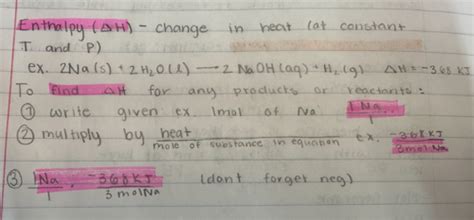 Enthalpy (ΔH) - change in heat (at constant
T and P)
ex. 2Na(s) + 2H₂O(l) → 2 NaOH(aq) + H₂(g) ΔH = -368 KJ
To find ΔH for any products or reactants:
① write given ex. 1mol of Na 1 Na
1
② multiply by heat ex. -368 KJ
mole of substance in equation 3 mol Na
③ 1 Na . -368 KJ (don't forget neg)
1 3 mol Na